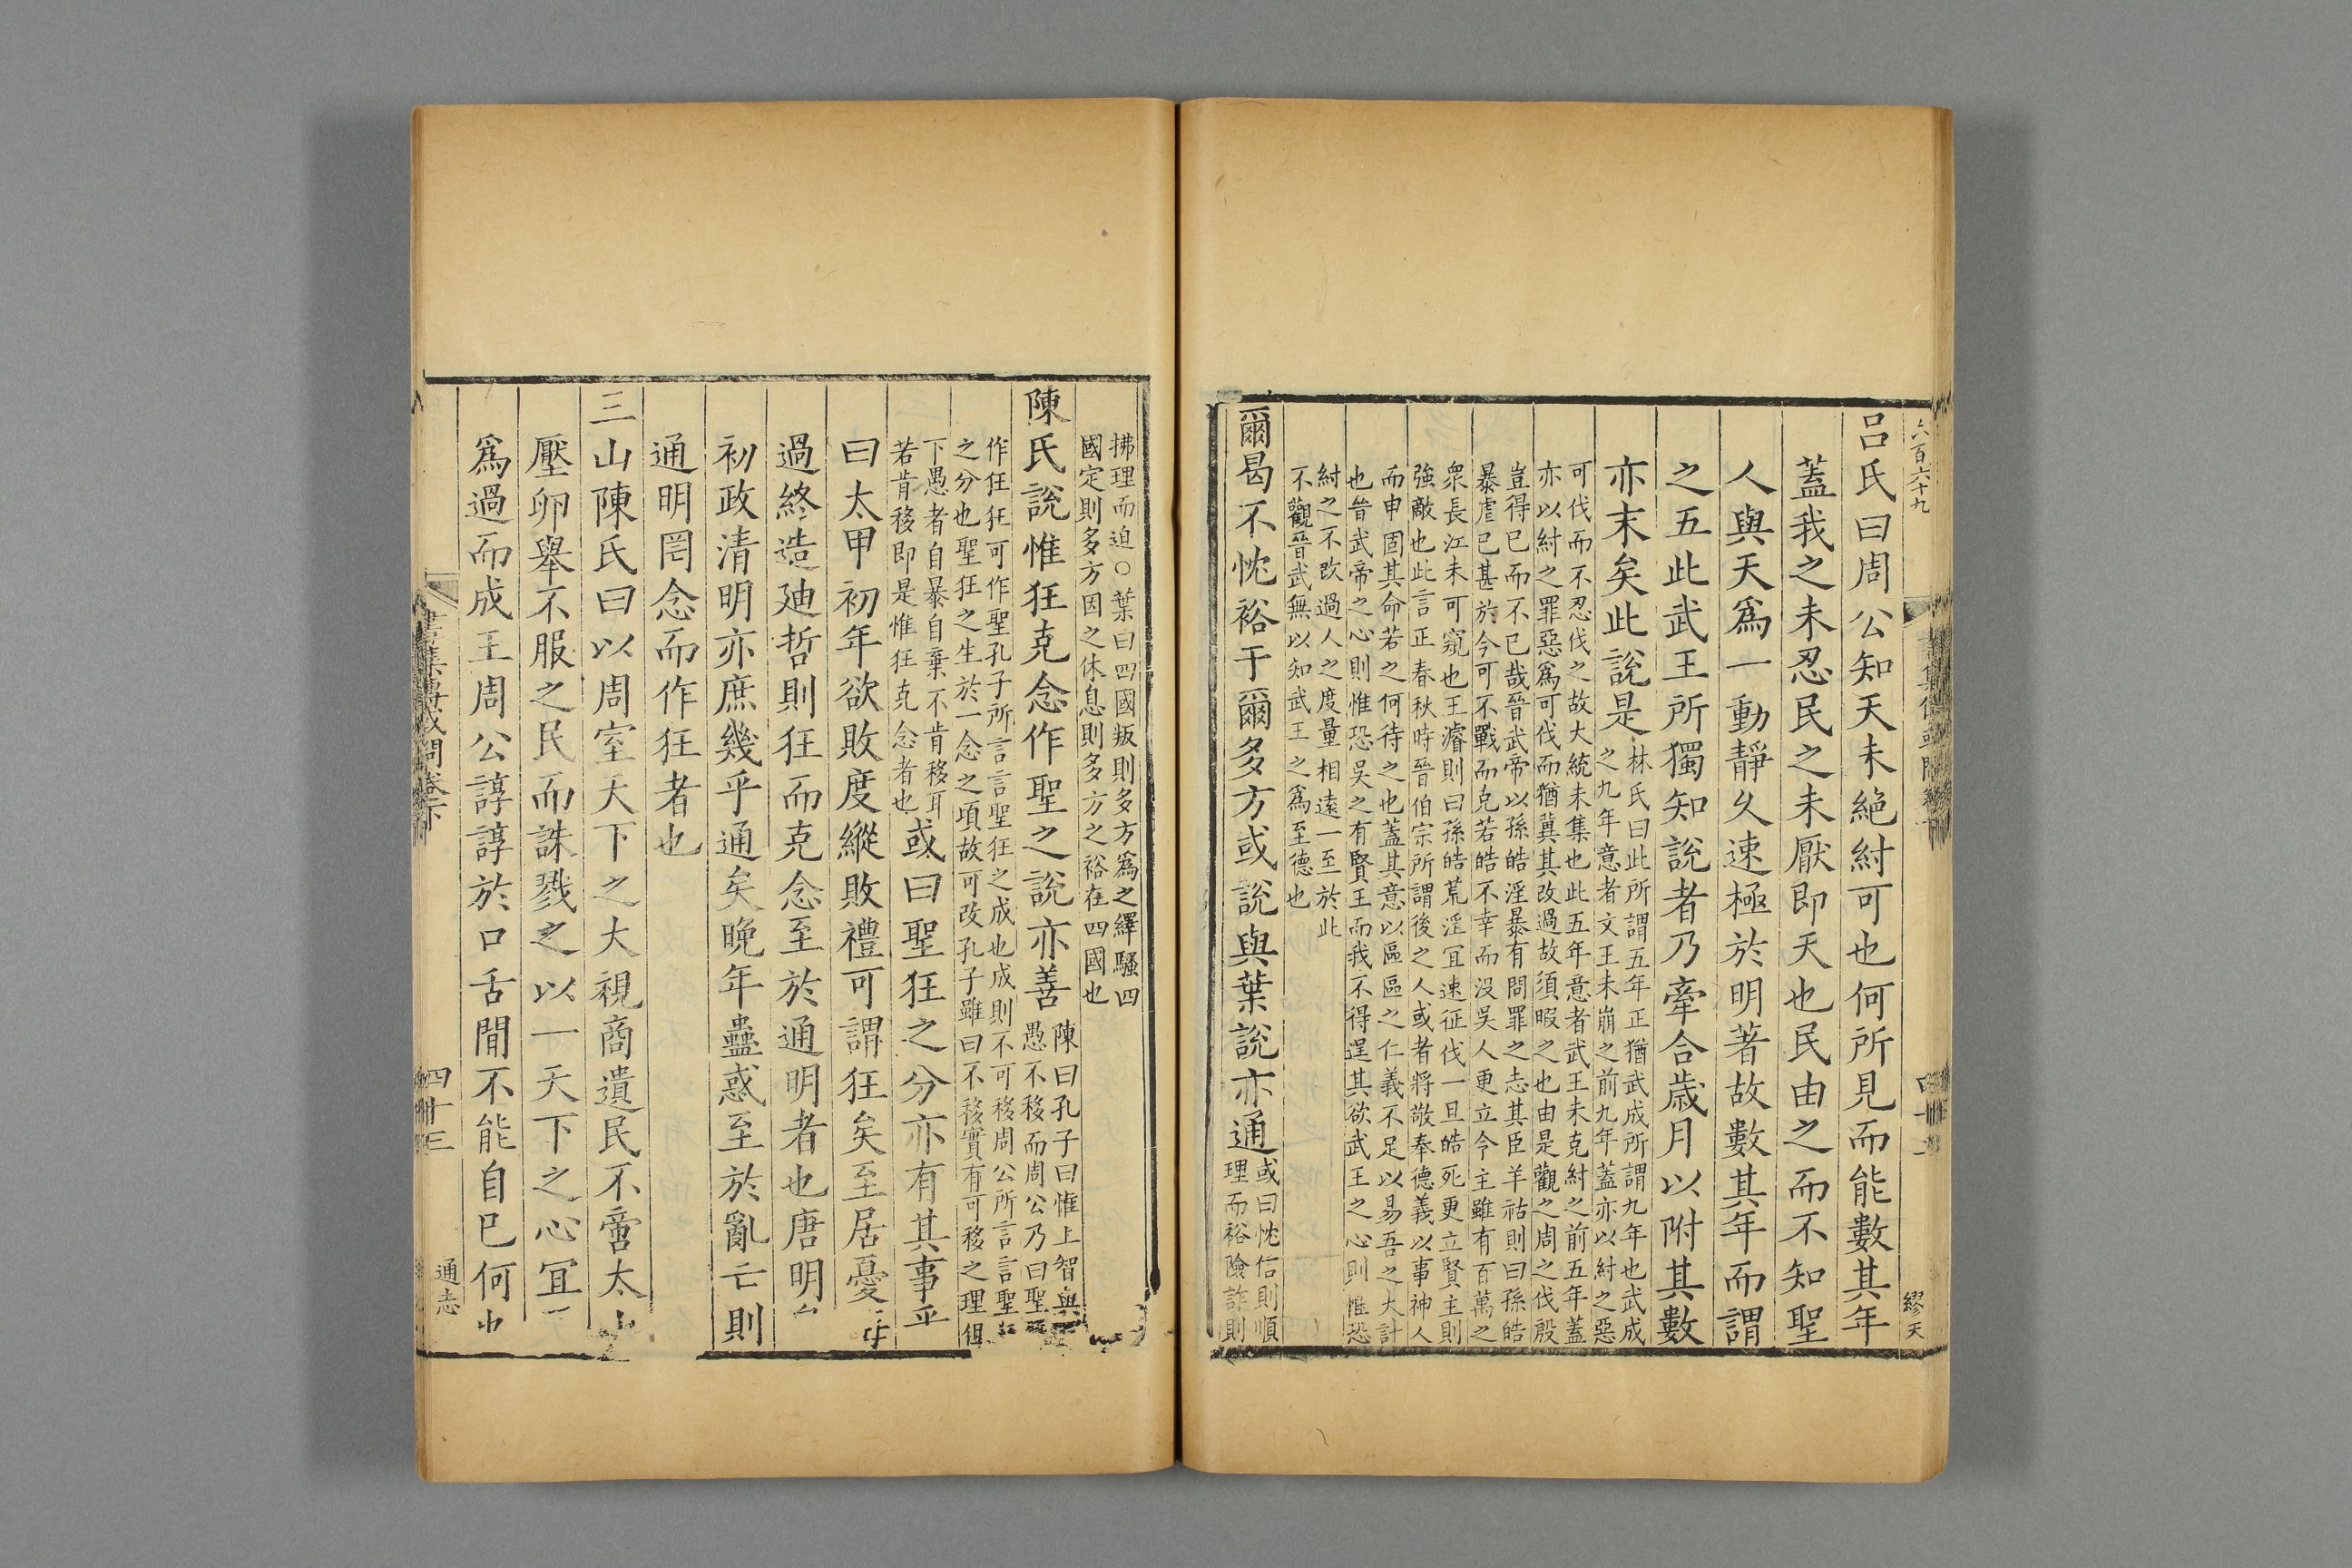 六百六十九
呂氏曰周公知天未絕紂可也何所見而能數其年
蓋我之未忍民之未厭即天也民由之而不知聖
人與天爲一動靜久速極於明著故數其年而謂
之五此武王所獨知說者乃牽合歲月以附其數
亦末矣此說是
林氏曰此所謂五年正猶武成所謂九年也武成
之九年意者文王未崩之前九年蓋亦以紂之惡
可伐而不忍伐之故大統未集也此五年意者武王未克紂之前五年蓋
亦以紂之罪惡爲可伐而猶冀其改過故須暇之也由是觀之周之伐殷
豈得已而不已哉晉武帝以孫皓淫暴有問罪之志其臣羊祜則曰孫皓
暴虐已甚於今可不戰而克若皓不幸而沒吳人更立令主雖有百萬之
衆長江未可窺也王濬則曰孫皓荒淫宜速征伐一旦皓死更立賢主則
強敵也此言正春秋時晉伯宗所謂後之人或者將敬奉德義以事神人
而申固其命若之何待之也蓋其意以區區之仁義不足以易吾之大計
也晉武帝之心則惟恐吳之有賢王而我不得逞其欲武王之心則惟恐
紂之不改過人之度量相遠一至於此
不觀晉武無以知武王之爲至德也
爾曷不忱裕于爾多方或說與葉說亦通
或曰忱信則順
理而裕險詐則
繆天
拂理而迫○葉曰四國叛則多方爲之繹騷四
國定則多方因之休息則多方之裕在四國也
陳氏說惟狂克念作聖之說亦善
陳曰孔子曰惟上智與
愚不移而周公乃曰聖
作狂狂可作聖孔子所言言聖狂之成也成則不可移周公所言言聖狂
之分也聖狂之生於一念之項故可改孔子雖曰不移實有可移之理但
下愚者自暴自棄不肯移耳
若肯移即是惟狂克念者也
或曰聖狂之分亦有其事乎
曰太甲初年欲敗度縱敗禮可謂狂矣至居憂
過終造廸哲則狂而克念至於通明者也唐明
初政清明亦庶幾乎通矣晚年蠱惑至於亂亡則
通明罔念而作狂者也
三山陳氏曰以周室天下之大視商遺民不啻太山
壓卵舉不服之民而誅戮之以一天下之心宜
爲過而成王周公諄諄於口舌間不能自已何也
四十三
通志